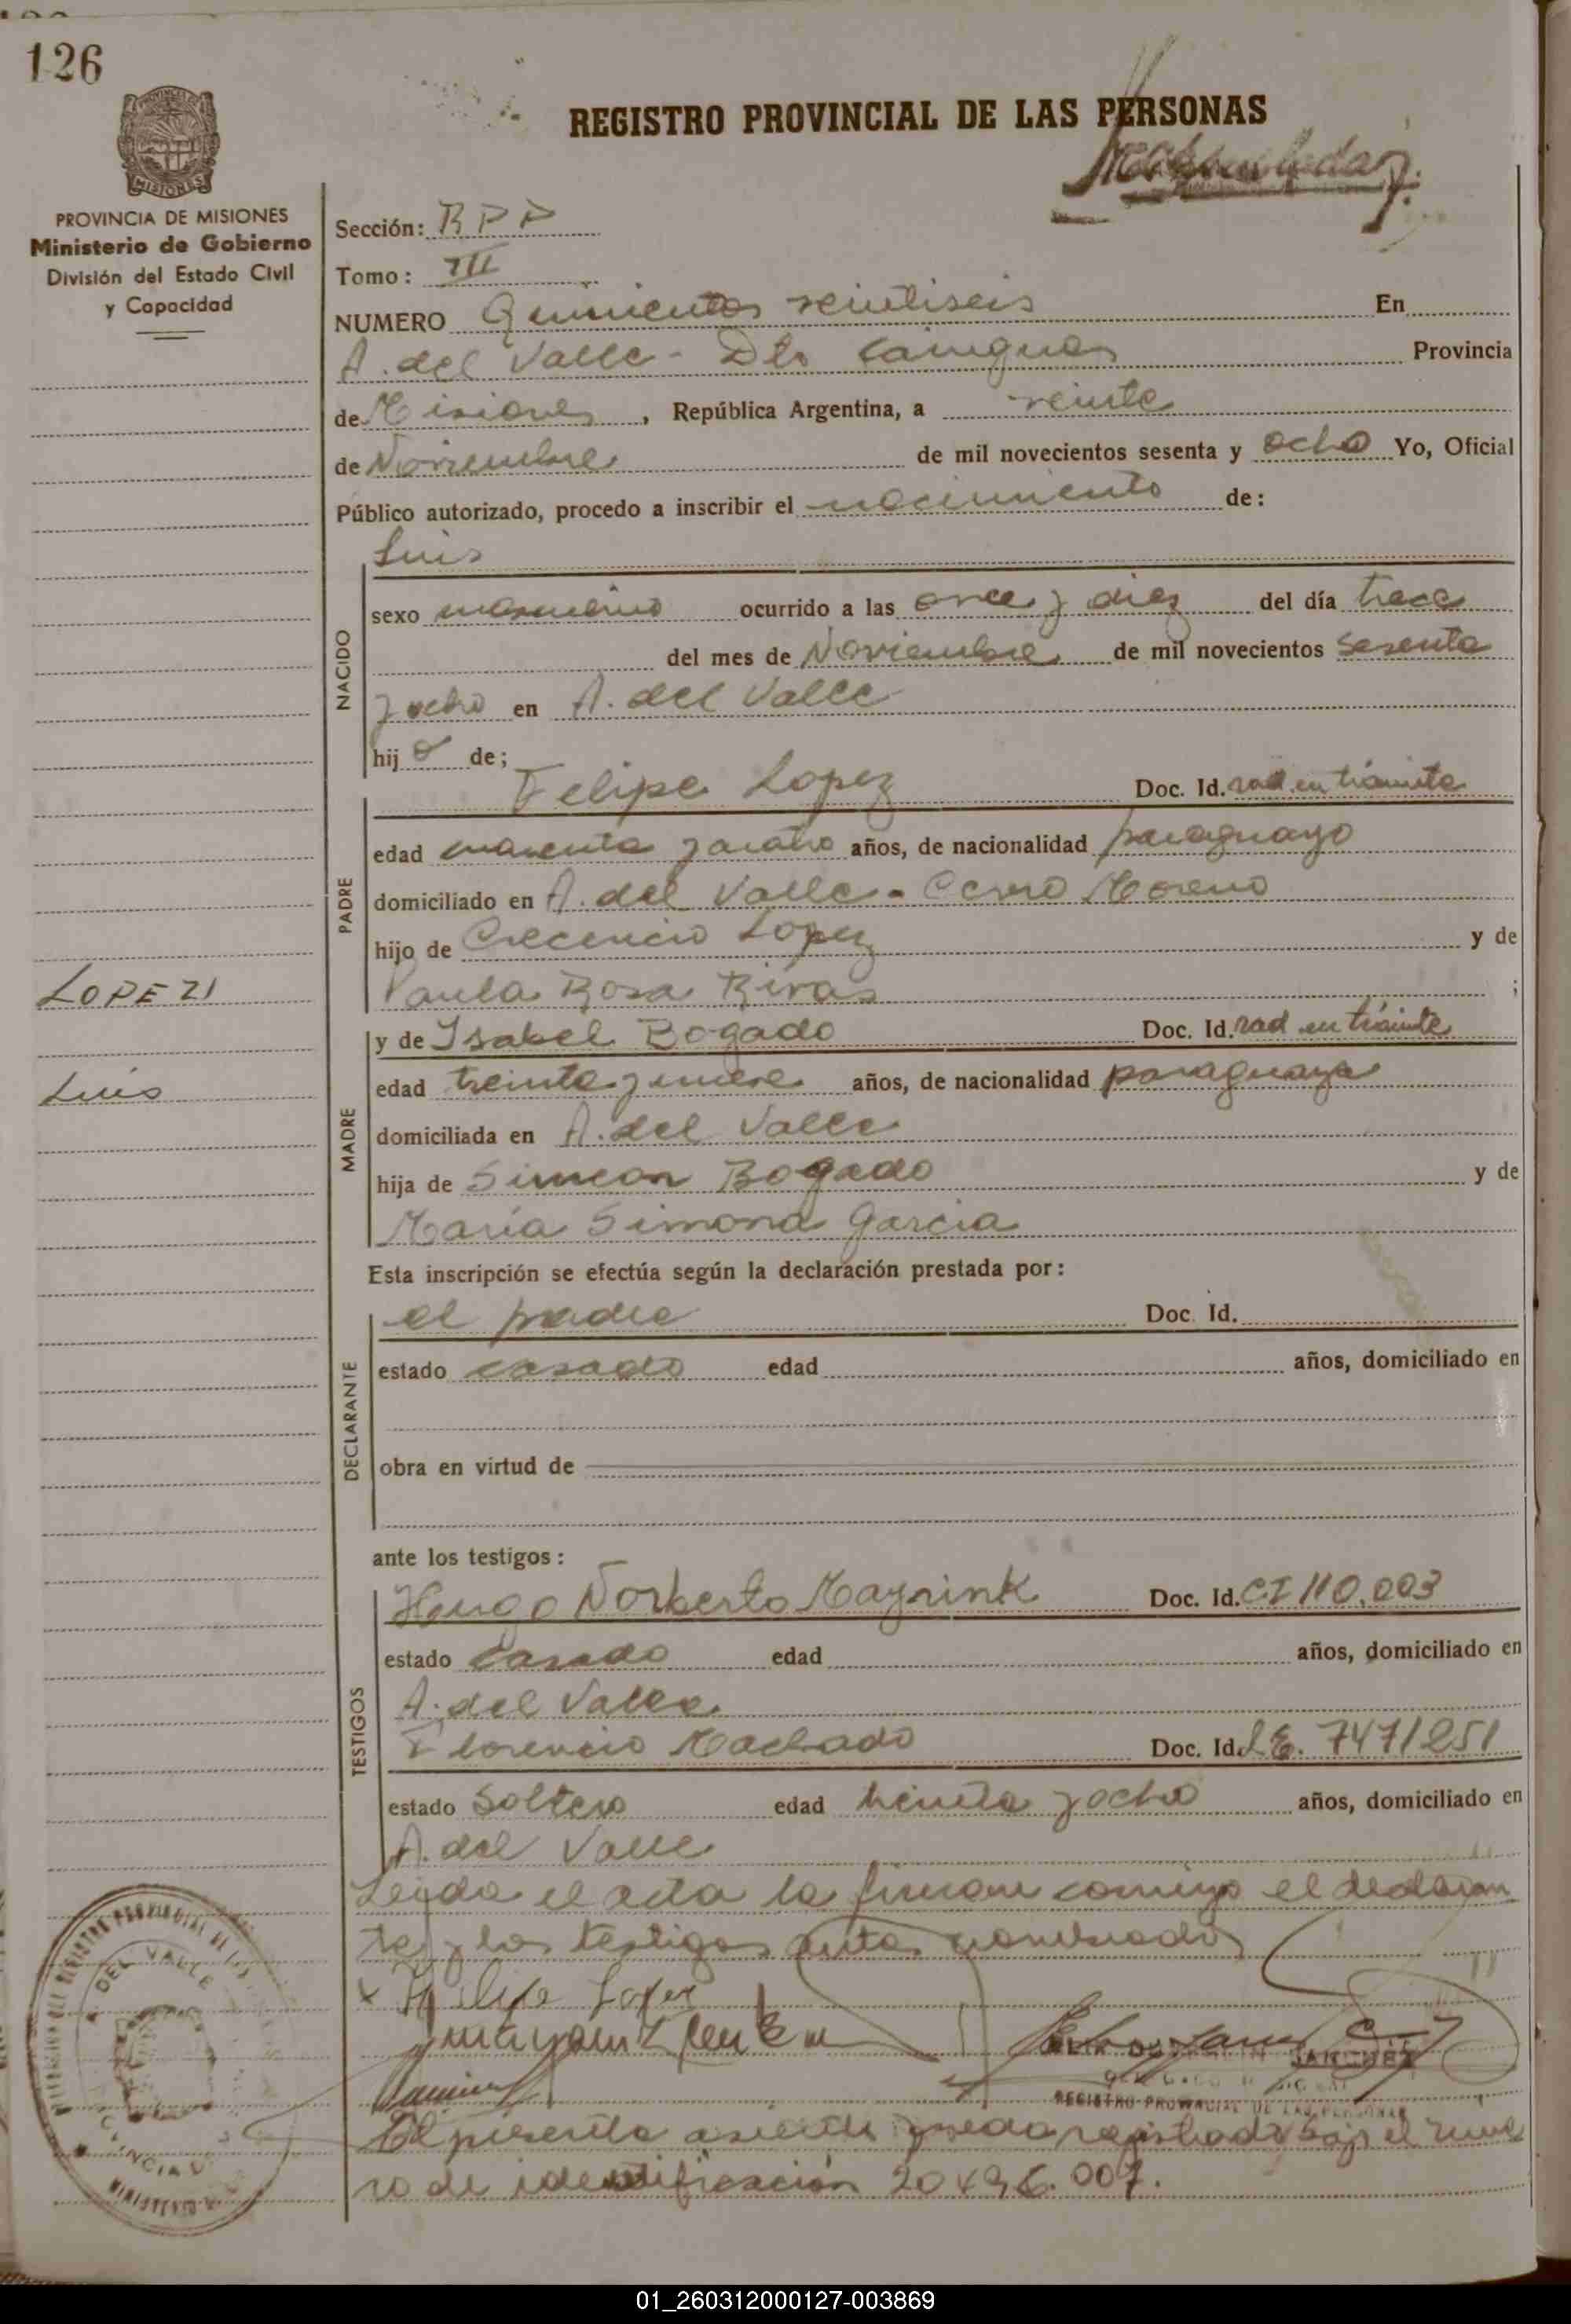 126
PROVINCIA DE MISIONES
Ministerio de Gobierno
División del Estado Civil
y Capacidad
REGISTRO PROVINCIAL DE LAS PERSONAS
Sección: R P P
Tomo: III
NUMERO Quinientos veintiseis En
A. del Valle - Dto Cainguas Provincia
de Misiones, República Argentina, a veinte
de Noviembre de mil novecientos sesenta y ocho Yo, Oficial
Público autorizado, procedo a inscribir el nacimiento de:
NACIDO
Luis
sexo masculino ocurrido a las once y diez del día trece
del mes de Noviembre de mil novecientos sesenta
y ocho en A. del Valle
hijo de;
PADRE
Felipe Lopez Doc. Id. rad. en trámite
edad cuarenta y cuatro años, de nacionalidad paraguayo
domiciliado en A. del Valle - Cerro Moreno
hijo de Crecencio Lopez y de
Paula Rosa Rivas ;
LOPEZ
Luis
MADRE
y de Isabel Bogado Doc. Id. rad en trámite
edad treinta y nueve años, de nacionalidad paraguaya
domiciliada en A. del Valle
hija de Simeon Bogado y de
María Simona Garcia
Esta inscripción se efectúa según la declaración prestada por:
DECLARANTE
el padre Doc. Id.
estado casado edad años, domiciliado en
obra en virtud de
ante los testigos:
TESTIGOS
Hugo Norberto Mayrink Doc. Id. CI 110.003
estado casado edad años, domiciliado en
A. del Valle
Florencio Machado Doc. Id. L.E. 7471251
estado Soltero edad treinta y ocho años, domiciliado en
A. del Valle
Leida el acta la firman comigo el declaran
te y los testigos antes nombrados
x Felipe Lopez
SANCHEZ
REGISTRO PROVINCIAL DE LAS PERSONAS
El presente asiento queda registrado bajo el nume
ro de identificación 20.496.007.
A DEL VALLE
01_260312000127-003869